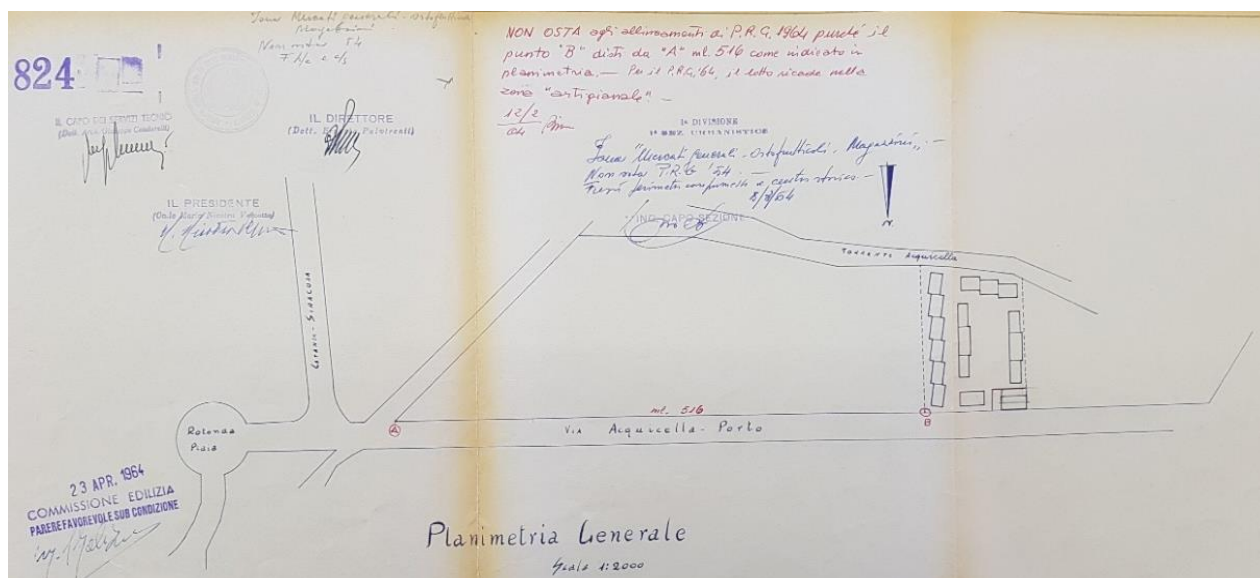 824
Zona Mercati generali - ortofrutticoli
Magazzini
Non osta 54
IL CAPO DEI SERVIZI TECNICI
IL DIRETTORE
IL PRESIDENTE
NON OSTA agli allineamenti di P.R.G. 1964 purché il
punto "B" disti da "A" ml. 516 come indicato in
planimetria. — Per il P.R.G. '64, il lotto ricade nella
zona "artigianale". —
12/2
64
1ª DIVISIONE
1ª SEZ. URBANISTICE
Zona "Mercati generali - ortofrutticoli - Magazzini" —
Non osta P.R.G '54 —
Fuori perimetro e centro storico —
ING. CAPO SEZIONE
N.
TORRENTE Acquicella
CATANIA - SIRACUSA
ml. 516
A
B
VIA Acquicella - Porto
Rotonda
Plaia
23 APR. 1964
COMMISSIONE EDILIZIA
PARERE FAVOREVOLE SUB CONDIZIONE
Planimetria Generale
Scala 1:2000